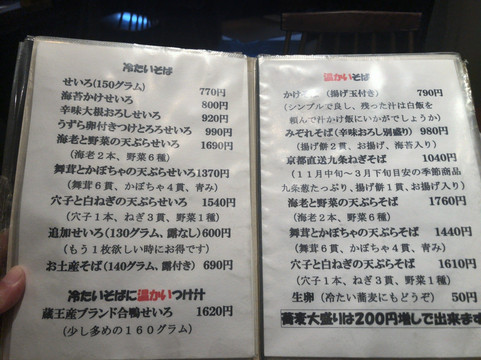 冷たいそば
せいろ(150グラム) 770円
海苔かけせいろ 800円
辛味大根おろしせいろ 920円
うずら卵付きつけとろろせいろ 990円
海老と野菜の天ぷらせいろ 1690円
(海老2本、野菜6種)
舞茸とかぼちゃの天ぷらせいろ1370円
(舞茸6貫、かぼちゃ4貫、青み)
穴子と白ねぎの天ぷらせいろ 1540円
(穴子1本、ねぎ3貫、野菜1種)
追加せいろ(130グラム、露なし)600円
(もう1枚欲しい時にお得です)
お土産そば(140グラム、露付き) 690円
冷たいそばに温かいつけ汁
蔵王産ブランド合鴨せいろ 1620円
(少し多めの160グラム)
温かいそば
かけ (揚げ玉付き) 790円
(シンプルで良し、残った汁は白飯を
頼んで汁かけ飯にいかがでしょうか)
みぞれそば(辛味おろし別盛り) 980円
(揚げ餅2貫、お揚げ、海苔入り)
京都直送九条ねぎそば 1040円
(11月中旬〜3月下旬目安の季節商品
九条葱たっぷり、揚げ餅1貫、お揚げ入り)
海老と野菜の天ぷらそば 1760円
(海老2本、野菜6種)
舞茸とかぼちゃの天ぷらそば 1440円
(舞茸6貫、かぼちゃ4貫、青み)
穴子と白ねぎの天ぷらそば 1610円
(穴子1本、ねぎ3貫、野菜1種)
生卵 (冷たい蕎麦にもどうぞ) 50円
蕎麦大盛りは200円増しで出来ます